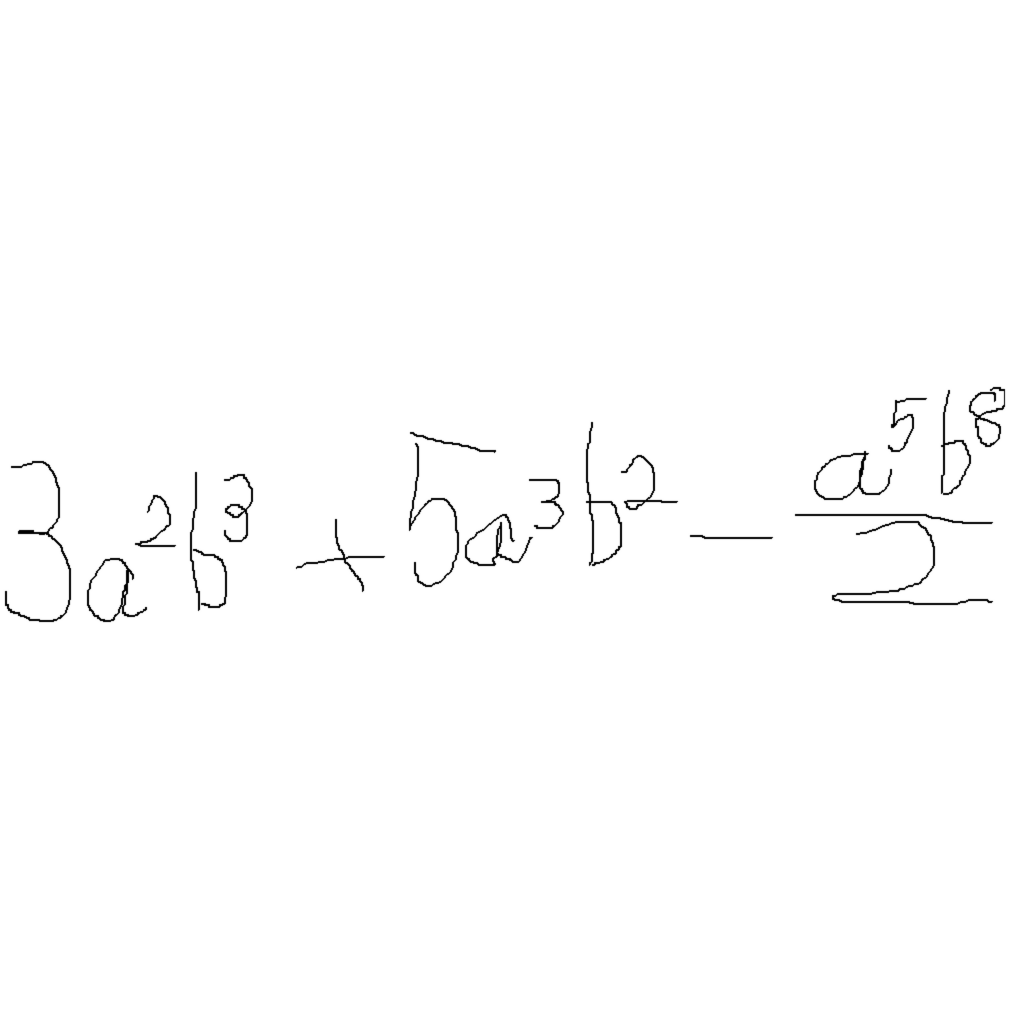 3a²b³ + 5a³b² − a⁵b⁸/2